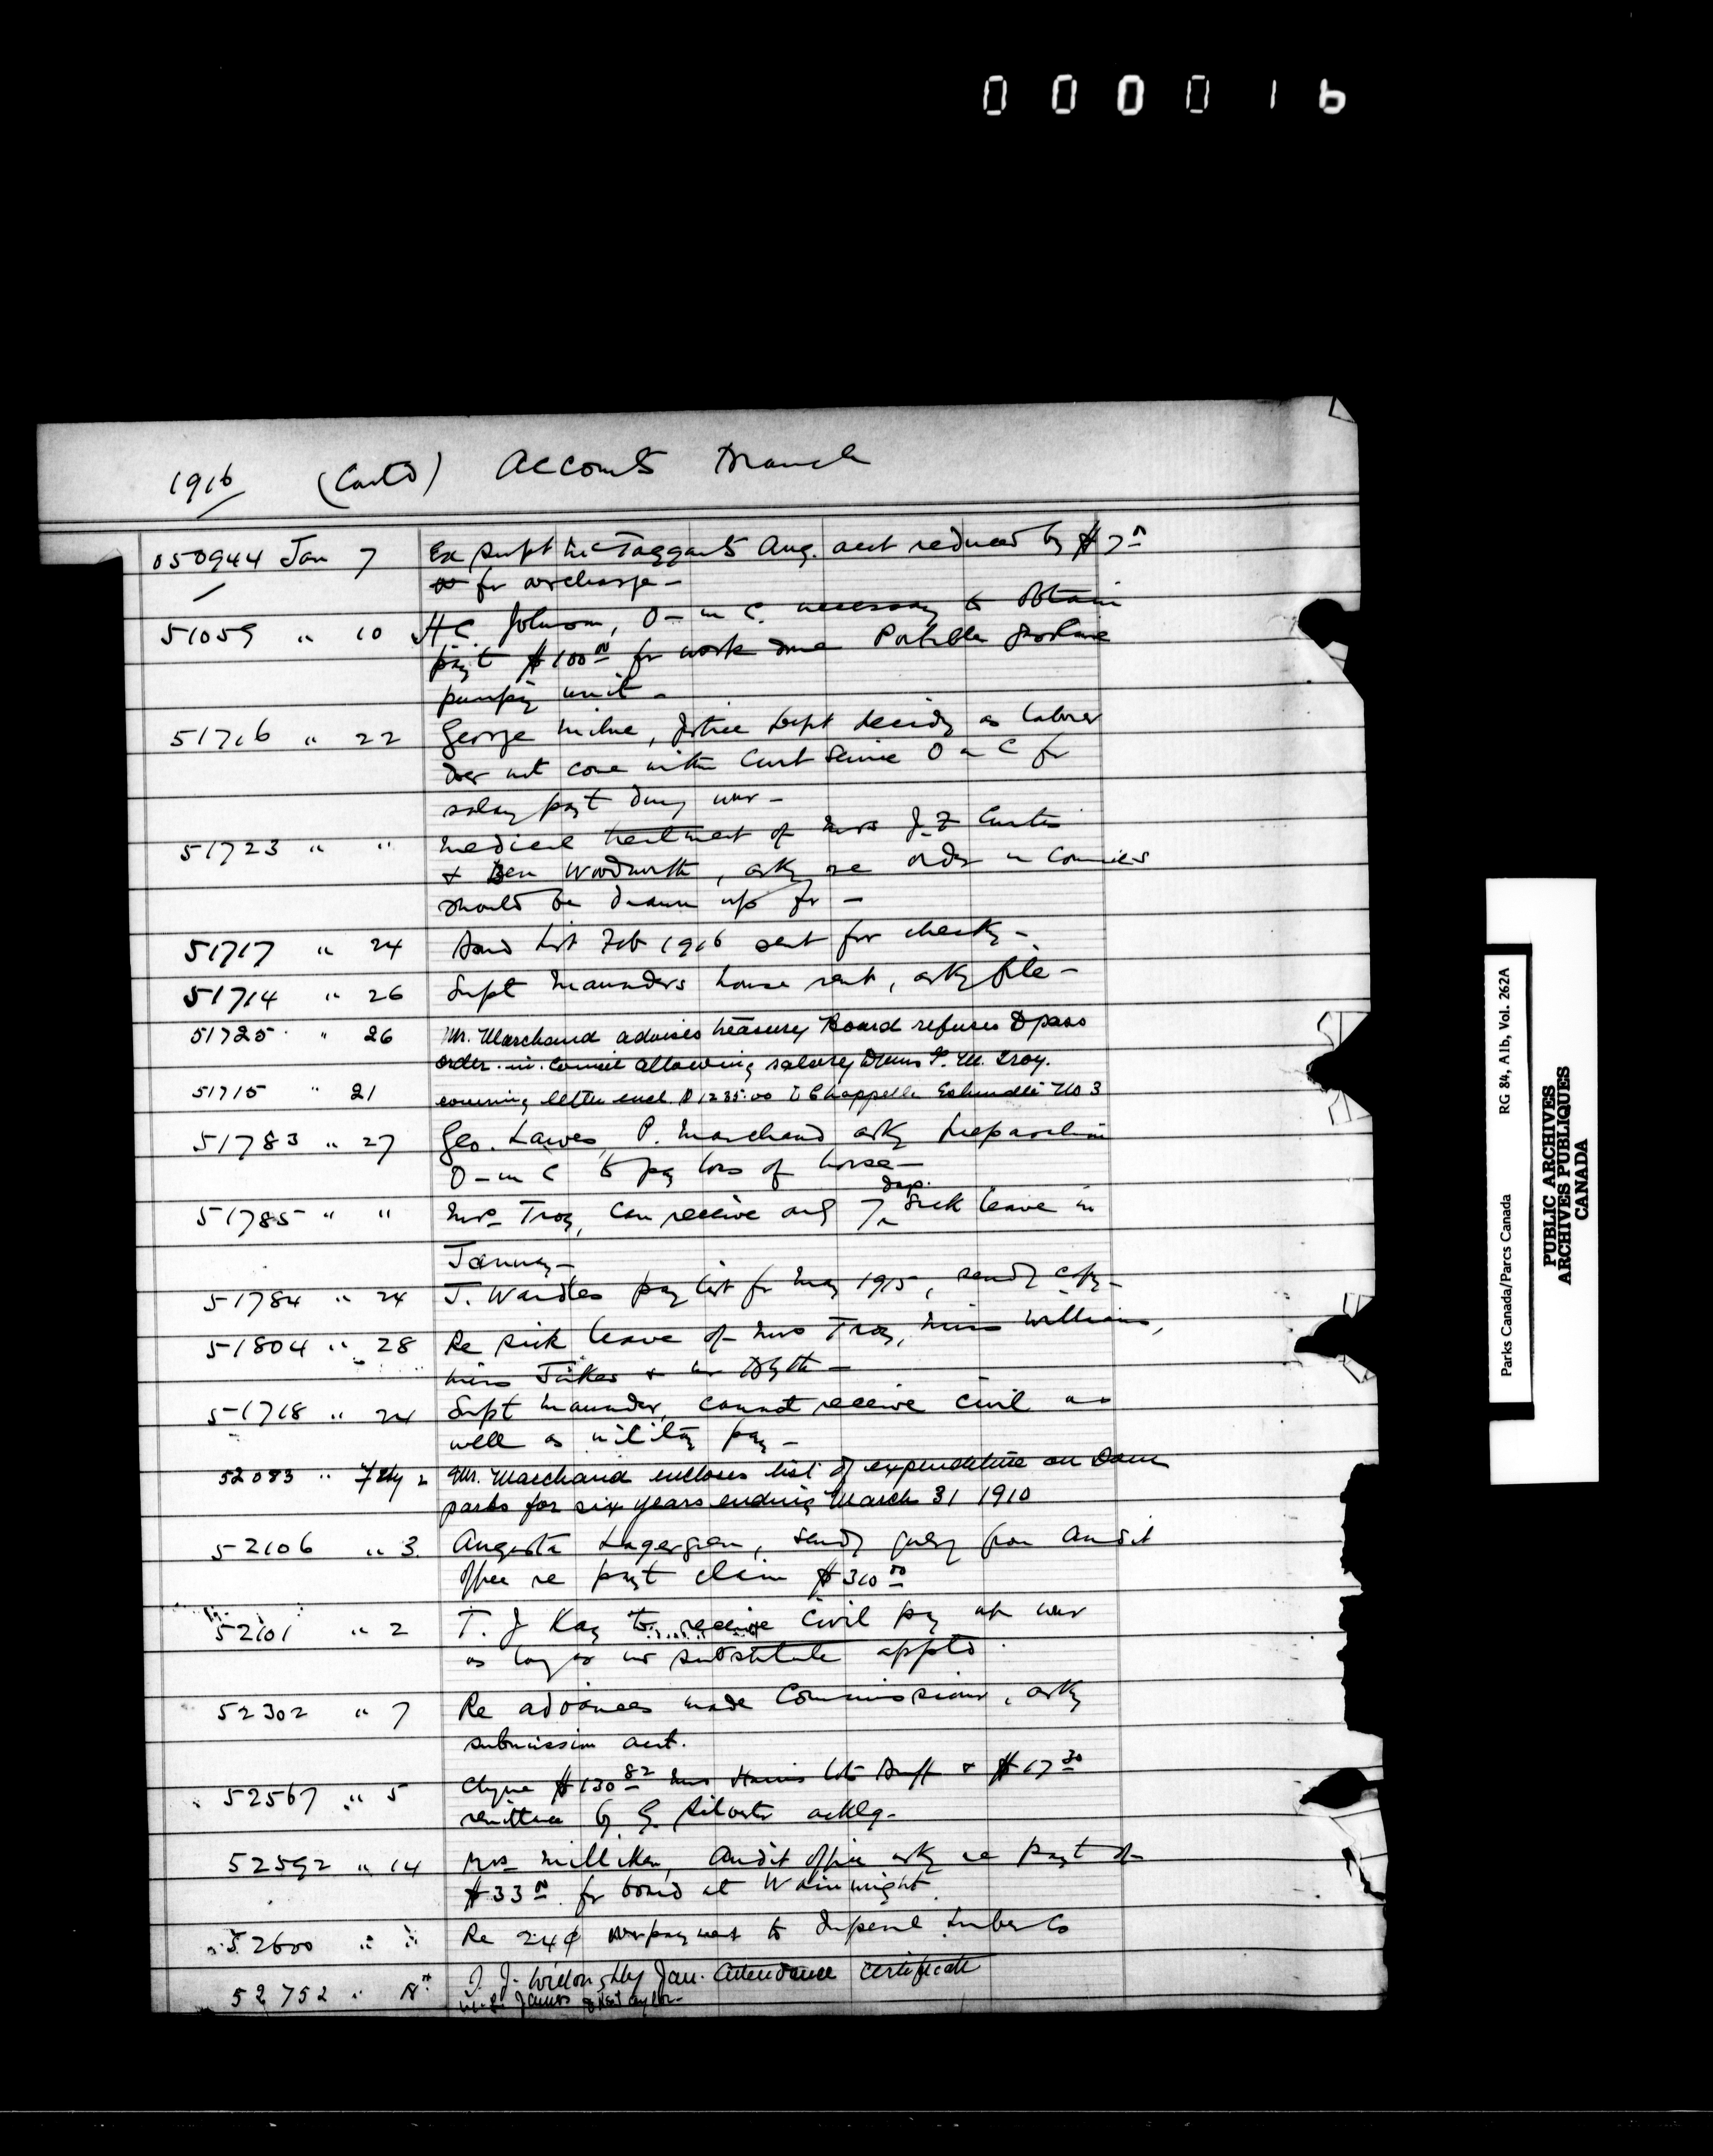 000016
1916 (Contd) Accounts Branch
050944 Jan 7 Ex Supt McTaggarts Aug. acct reduced by $7.00
for overcharge -
51059 " 10 H C. Johnson, O-in C. necessary to obtain
pay't $100.00 for work done Portable gasoline
pumping unit -
51716 " 22 George Milne, Justice Dept decidg as laborer
does not come within Civil Service O in C for
salary pay't during war -
51723 " " Medical treatment of Mrs J. Z Curtis
& Ben Woodworth, askg re order in Council
should be drawn up for -
51717 " 24 List Feb 1916 sent for checkg -
51714 " 26 Supt Maunders house rent, askg file -
51725 " 26 Mr. Marchand advises Treasury Board refuses to pass
order-in-Council allowing salary F. M. Troy.
51715 " 21 covering letter encl. $1235.00 Chappelle No 3
51783 " 27 Geo. Lawes, P. Marchand askg preparation
O-in C to pay loss of horse -
51785 " " Mrs Troy, can receive only 7 days sick leave in
January -
51784 " 24 J. Wardles pay list for May 1915, sendg copy -
51804 " 28 Re sick leave of Mrs Troy, Miss Williams,
Miss & Mr Blyth -
51718 " 24 Supt Maunder, cannot receive civil as
well as military pay -
52083 " Feby 2 Mr. Marchand encloses list of expenditure on Dom
parks for six years ending March 31 1910
52106 " 3. Augusta Lagergren, sendg query from Audit
Office re pay't claim $310.00
52101 " 2 T. J Kay to receive civil pay
as long as no substitute apptd.
52302 " 7 Re advances made Commissioner, askg
submission acct.
52567 " 5 Cheque $130.82 Mrs Harris lots Banff & $17.30
remittance by G. ackldg -
52592 " 14 Mrs Milliken, Audit Office askg re pay't of
$33.00 for board at Wainwright
52600 " " Re 24¢ overpayment to Imperial Lumber Co
52752 " 18 J. J. Willoughby Jan. Attendance certificate
Parks Canada/Parcs Canada RG 84, A1b, Vol. 262A
PUBLIC ARCHIVES
ARCHIVES PUBLIQUES
CANADA